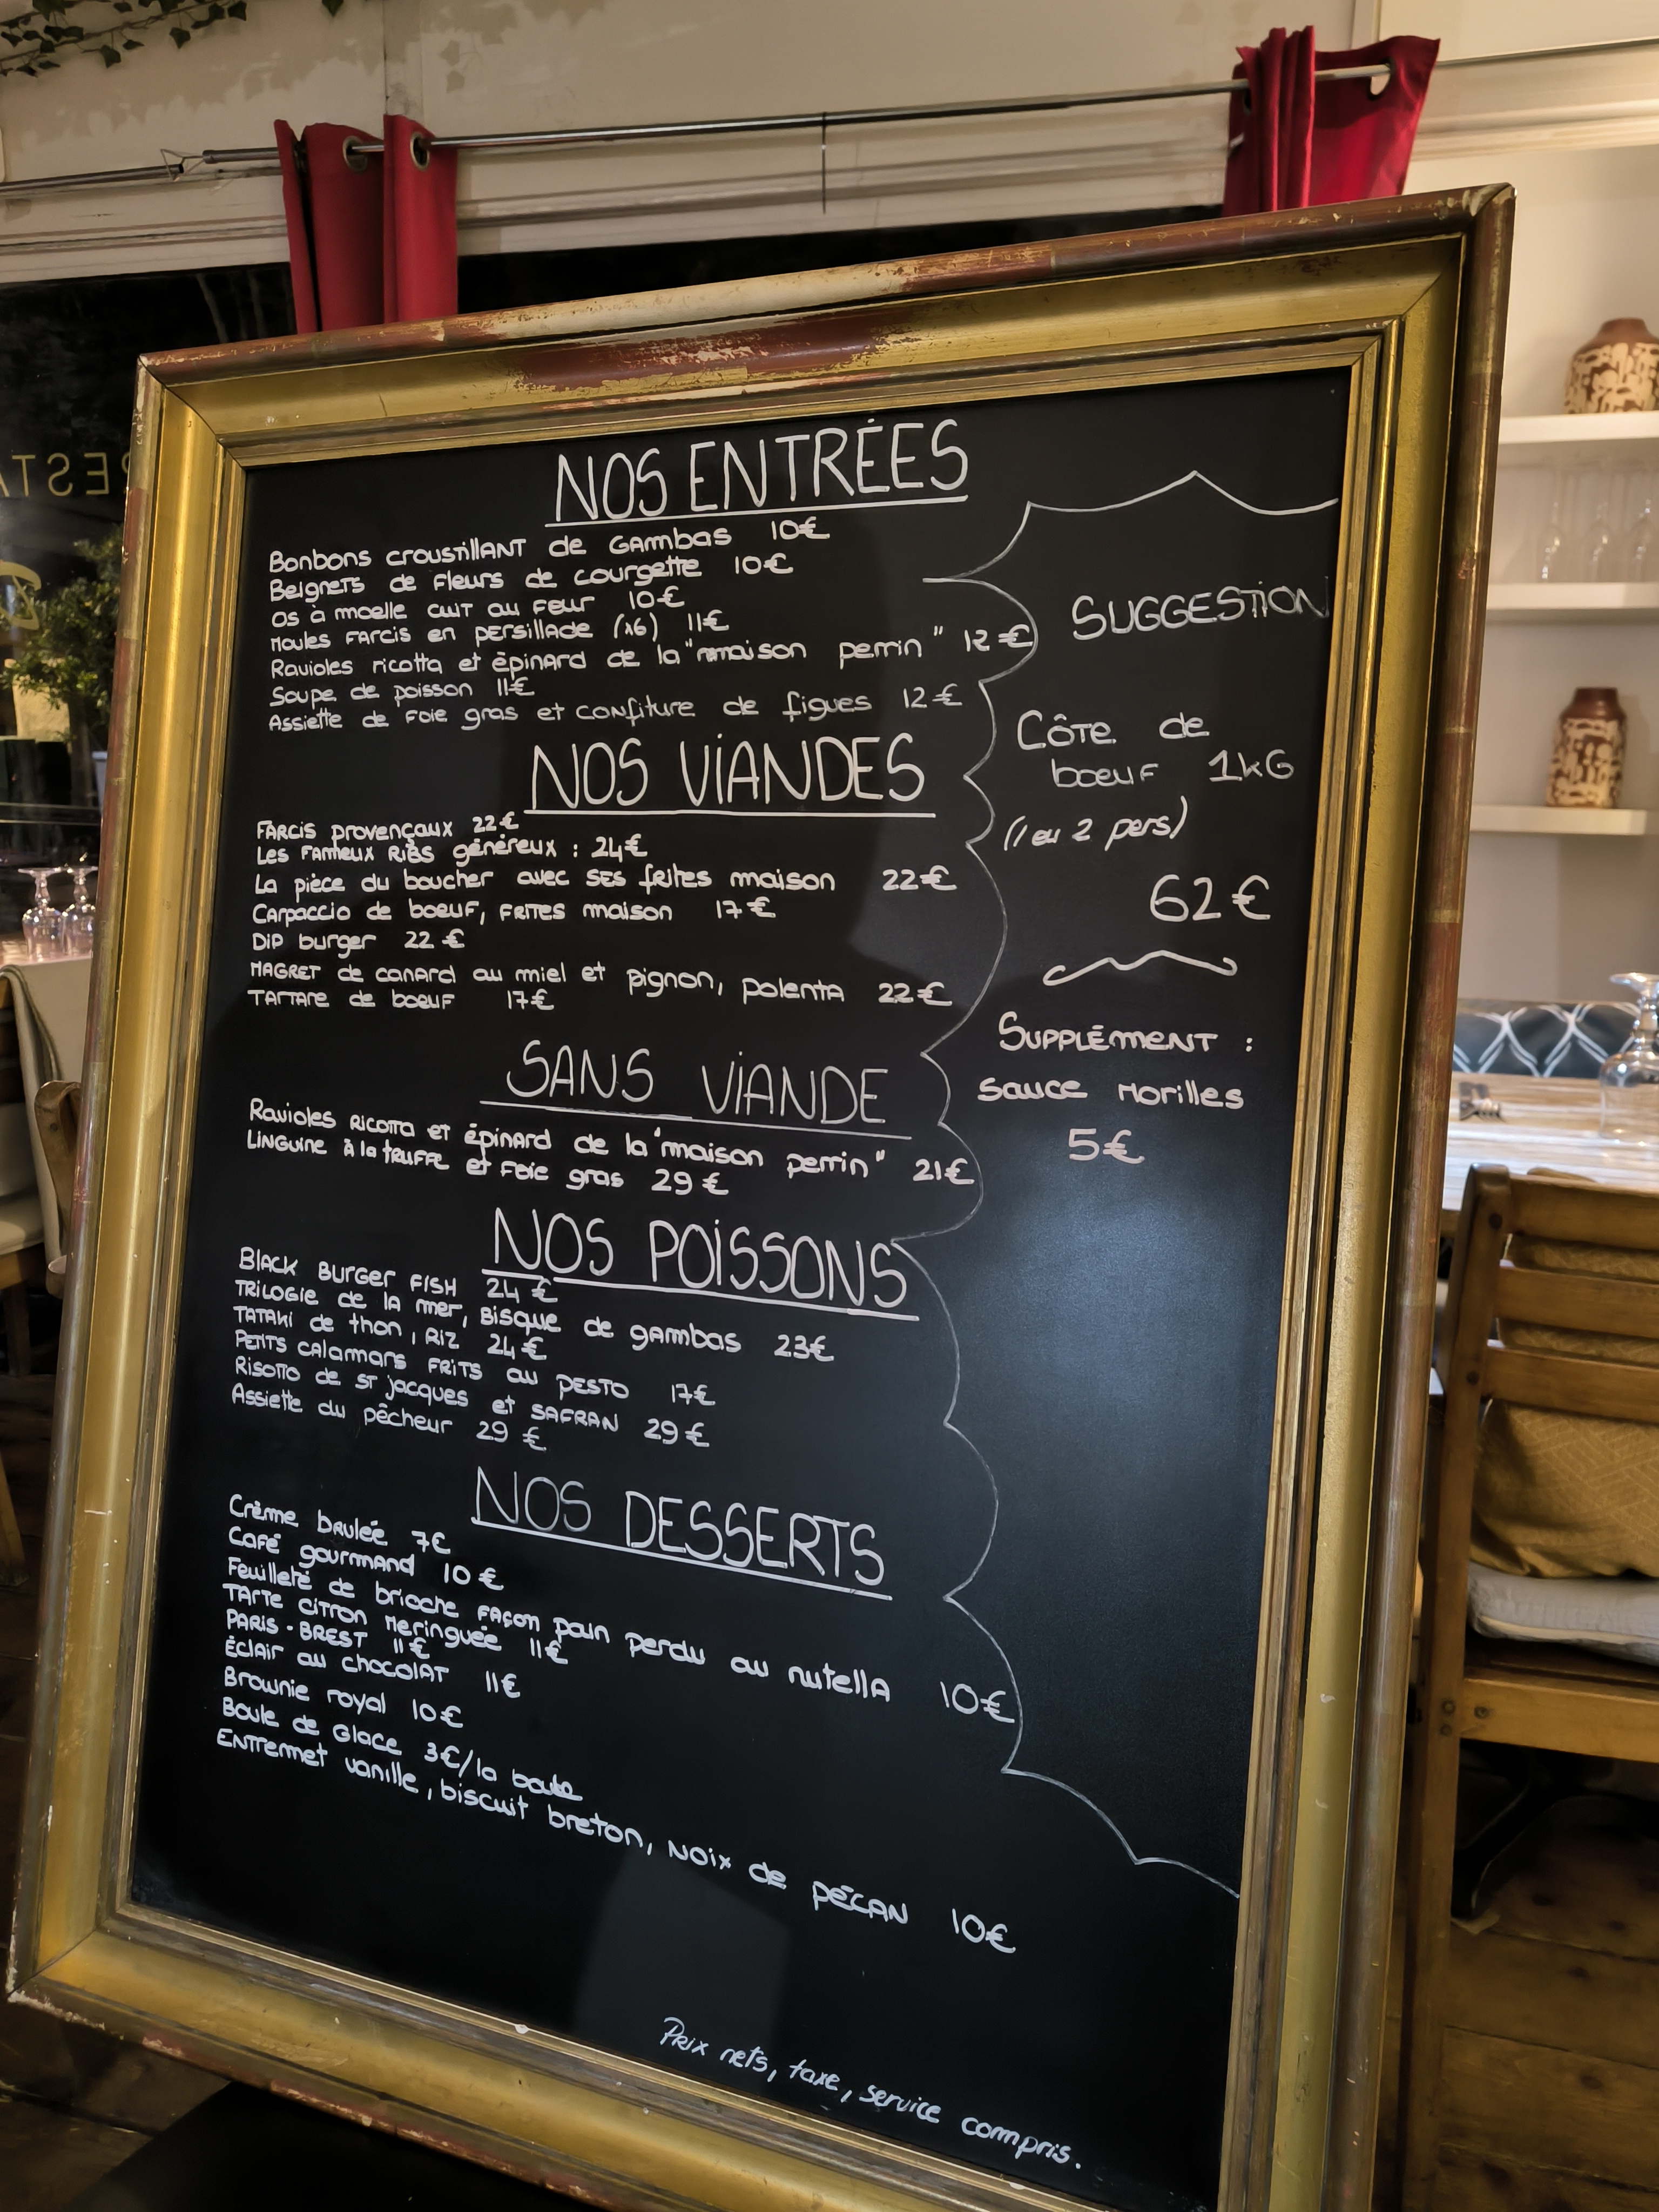 NOS ENTRÉES
Bonbons croustillant de Gambas 10€
Beignets de Fleurs de courgette 10€
os à moelle cuit au Feur 10€
Moules Farcis en persillade (x6) 11€
Ravioles ricotta et épinard de la "maison perrin" 12€
Soupe de poisson 11€
Assiette de Foie gras et confiture de figues 12€
NOS VIANDES
Farcis provençaux 22€
Les Fameux Ribs généreux : 24€
La pièce du boucher avec ses frites maison 22€
Carpaccio de boeuf, frites maison 17€
Dip burger 22€
Magret de canard au miel et pignon, polenta 22€
Tartare de boeuf 17€
SANS VIANDE
Ravioles Ricotta et épinard de la "maison perrin" 21€
Linguine à la truffe et Foie gras 29€
NOS POISSONS
Black Burger Fish 24€
Trilogie de la mer, Bisque de gambas 23€
Tataki de thon, riz 24€
Petits calamars frits au pesto 17€
Risotto de St jacques et safran 29€
Assiette du pêcheur 29€
NOS DESSERTS
Crème brulée 7€
Café gourmand 10€
Feuilleté de brioche façon pain perdu au nutella 10€
Tarte citron meringuée 11€
PARIS-BREST 11€
Éclair au chocolat 11€
Brownie royal 10€
Boule de Glace 3€/la boule
Entremet vanille, biscuit breton, noix de pécan 10€
Prix nets, taxe, service compris.
SUGGESTION
Côte de
boeuf 1kG
(1 ou 2 pers)
62€
Supplément :
sauce Morilles
5€
RESTA